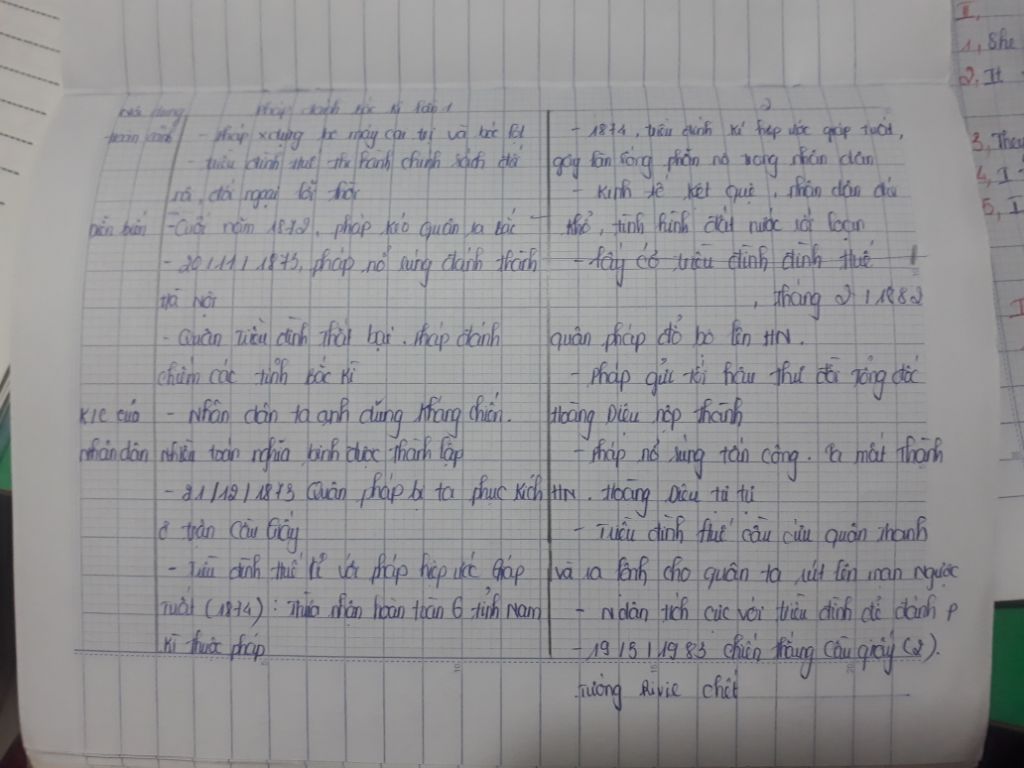 Nội dung Pháp đánh Bắc Kì lần 1 2
hoàn cảnh - Pháp x.dựng bộ máy cai trị và bóc lột
- triều đình Huế thi hành chính sách đối
nội, đối ngoại lỗi thời
Diễn biến - Cuối năm 1872, pháp kéo quân ra Bắc
- 20/11/1873, pháp nổ súng đánh thành
Hà Nội
- Quân triều đình thất bại. Pháp đánh
chiếm các tỉnh Bắc Kì
K/C của - Nhân dân ta anh dũng kháng chiến.
nhân dân nhiều toán nghĩa binh được thành lập
- 21/12/1873 Quân pháp bị ta phục kích
ở trận Cầu Giấy
- Triều đình Huế kí với pháp hiệp ước Giáp
Tuất (1874): Thừa nhận hoàn toàn 6 tỉnh Nam
Kì thuộc pháp
- 1874, triều đình kí hiệp ước giáp tuất,
gây làn sóng phẫn nộ trong nhân dân
- Kinh tế kiệt quệ, nhân dân đói
khổ, tình hình đất nước rối loạn
- lấy cớ triều đình đình Huế
, tháng 2/1882
quân pháp đổ bộ lên HN.
- Pháp gửi tối hậu thư đòi Tổng đốc
Hoàng Diệu nộp thành
- Pháp nổ súng tấn công. Ta mất thành
HN. Hoàng Diệu tự tự
- Triều đình Huế cầu cứu quân Thanh
và ra lệnh cho quân ta rút lên mạn ngược
- N.dân tích cực với triều đình để đánh P
- 19/5/1983 chiến thắng Cầu giấy (2).
Tướng Rivie chết
I,
1, She
2, It
3, They
4, I
5, I
I